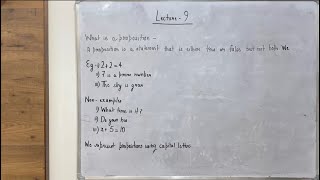 Lecture - 9
What is a proposition -
A proposition is a statement that is either true or false but not both. We
Eg → 2+2=4
ii) 7 is a prime number
iii) The sky is green
Non-examples
i) What time is it?
ii) Do your
iii) x + 5 = 10
We represent propositions using capital letters